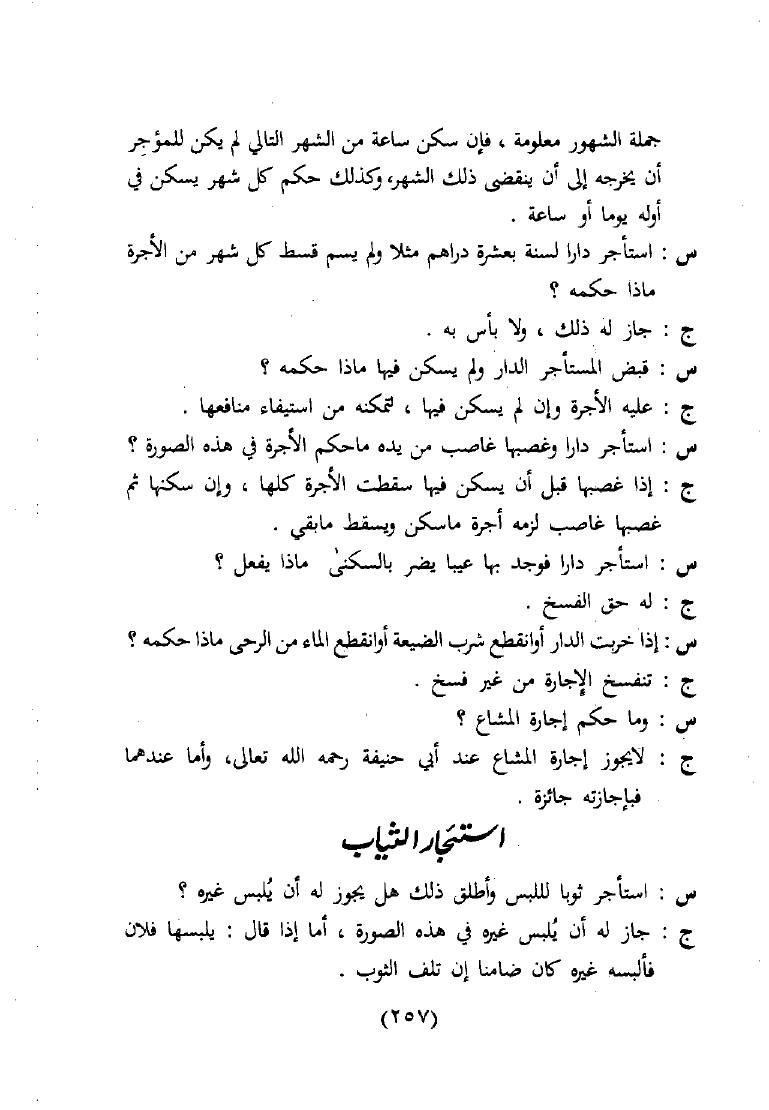 جملة الشهور معلومة ، فإن سكن ساعة من الشهر التالي لم يكن للمؤجِر
أن يخرجه إلى أن ينقضى ذلك الشهر، وكذلك حكم كل شهر يسكن في
أوله يوما أو ساعة .
س : استأجر دارا لسنة بعشرة دراهم مثلا ولم يسم قسط كل شهر من الأجرة
ماذا حكمه ؟
ج : جاز له ذلك ، ولا بأس به .
س : قبض المستأجر الدار ولم يسكن فيها ماذا حكمه ؟
ج : عليه الأجرة وإن لم يسكن فيها ، لتمكنه من استيفاء منافعها .
س : استأجر دارا وغصبها غاصب من يده ماحكم الأجرة في هذه الصورة ؟
ج : إذا غصبها قبل أن يسكن فيها سقطت الأجرة كلها ، وإن سكنها ثم
غصبها غاصب لزمه أجرة ماسكن ويسقط مابقي .
س : استأجر دارا فوجد بها عيبا يضر بالسكنىٰ ماذا يفعل ؟
ج : له حق الفسخ .
س : إذا خربت الدار أوانقطع شرب الضيعة أوانقطع الماء من الرحى ماذا حكمه ؟
ج : تنفسخ الإجارة من غير فسخ .
س : وما حكم إجارة المشاع ؟
ج : لايجوز إجارة المشاع عند أبي حنيفة رحمه الله تعالى، وأما عندهما
فبإجازته جائزة .
استئجار الثياب
س : استأجر ثوبا لللبس وأطلق ذلك هل يجوز له أن يُلبس غيره ؟
ج : جاز له أن يُلبس غيره في هذه الصورة ، أما إذا قال : يلبسها فلان
فألبسه غيره كان ضامنا إن تلف الثوب .
(٢٥٧)